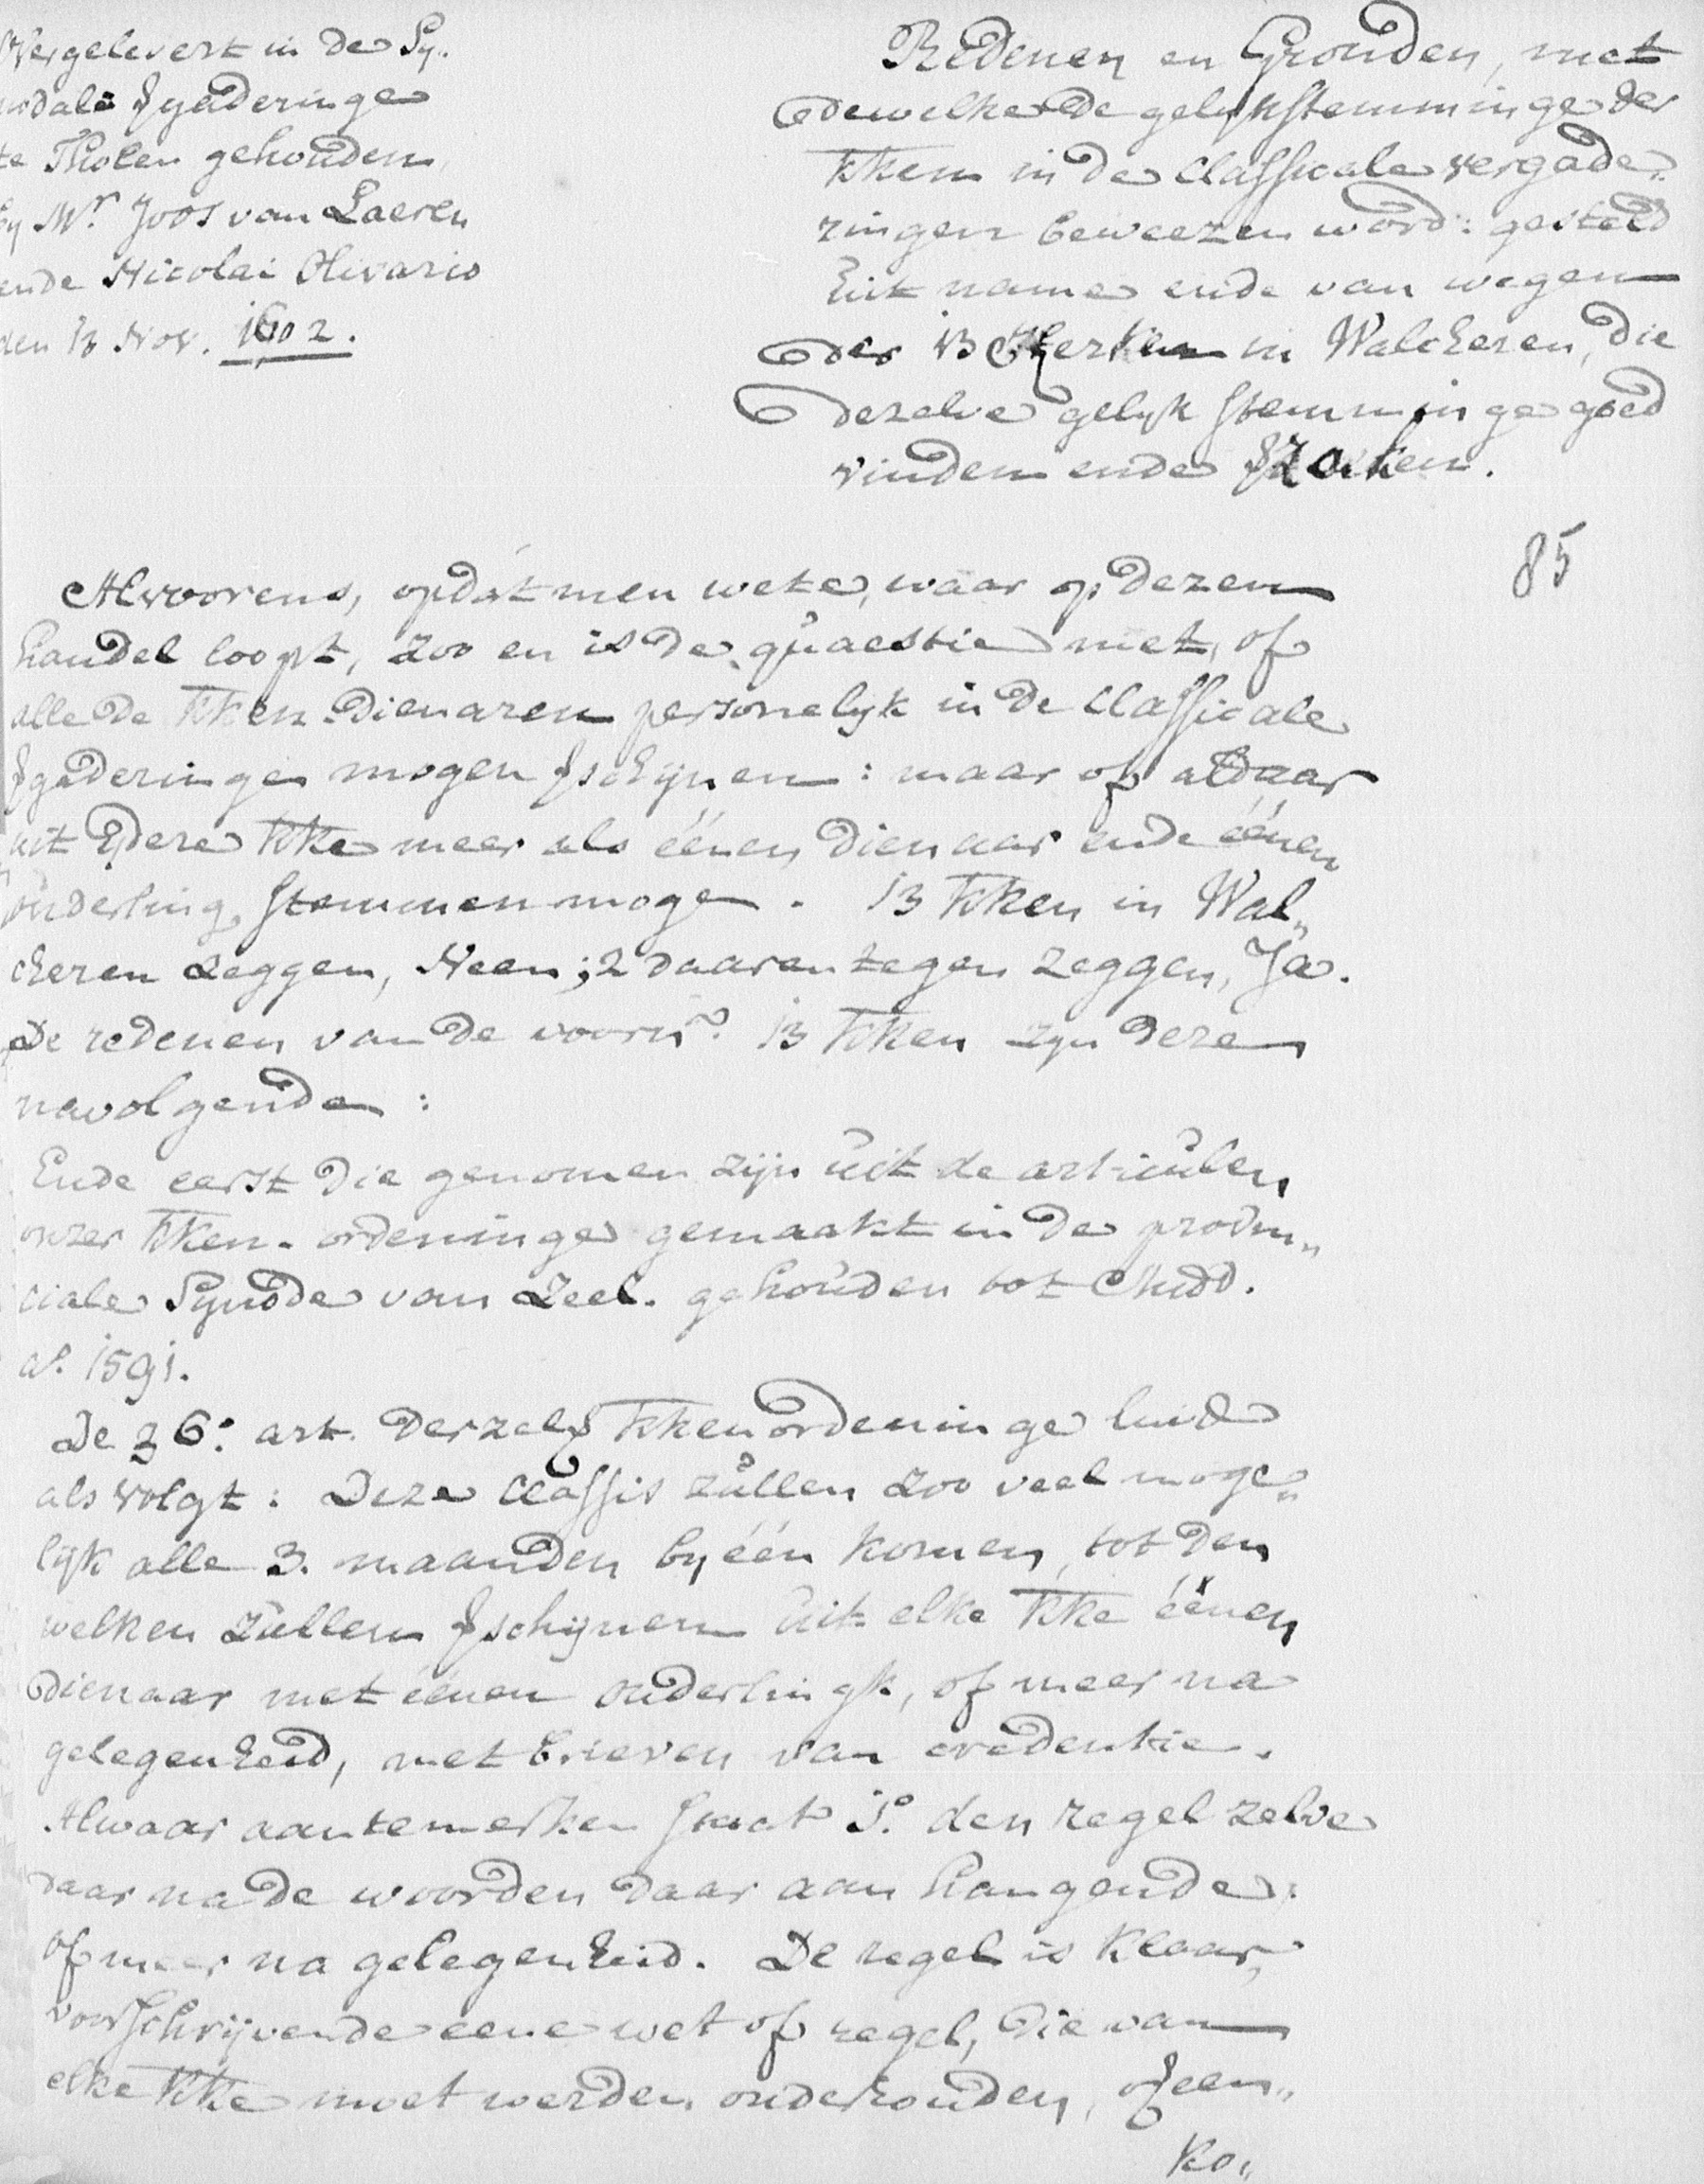 Overgelevert in de Sy„
nodale vgaderinge
te Tholen gehouden,
by Mr. Joos van Laeren
ende Nicolai Olivario
den 13 Nov. 1602.
Redenen en Gronden, met
dewelke de gelykstemminge der
kken in de Classicale vergade„
ringen beweezen word: gesteld
uit name ende van wegen
der 13 Kerken in Walcheren, die
dezelve gelyk stemminge goed
vinden ende vzoeken.
85
Alvorens, opdat men wete, waar op dezen
handel loopt, zoo en is de quaestie niet, of
alle de kken-dienaren personelyk in de Classicale
vgaderinge mogen vschijnen: maar of aldaar
uit ydere kke meer als éénen dienaar ende éénen
ouderling stemmen moge. 13 kken in Wal„
cheren zeggen, Neen; 2 daarentegen zeggen, Ja.
De redenen van de voorn. 13 kken zyn deze
navolgende:
Ende eerst die genomen zijn uit de articulen
onzer kken-ordeninge gemaakt in de provin„
ciale Synode van Zeel. gehouden tot Midd.
ao. 1591.
De 36. art. derzelv kkenordeninge luid
als volgt: Deze Classis zullen zoo veel moge„
lijk alle 3. maanden by één komen, tot den
welken zullen vschijnen uit elke kke éénen
dienaar met éénen ouderlingk, of meer na
gelegenheid, met brieven van credentie.
Alwaar aantemerken staat 1o. den regel zelve
daar na de woorden daar aan hangende:
of meer na gelegenheid. De regel is klaar,
voorschrijvende eene wet of regel, die van
elke kke moet werden onderhouden, ofeen„
ko„